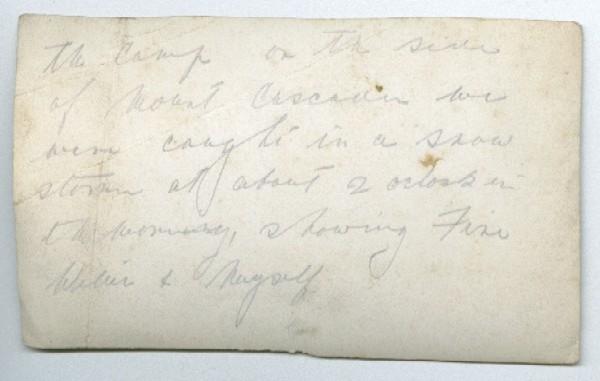 the Camp on the side
of Mount Cascades we
were caught in a snow
storm at about 2 oclock in
the morning, showing Fire
& Myself